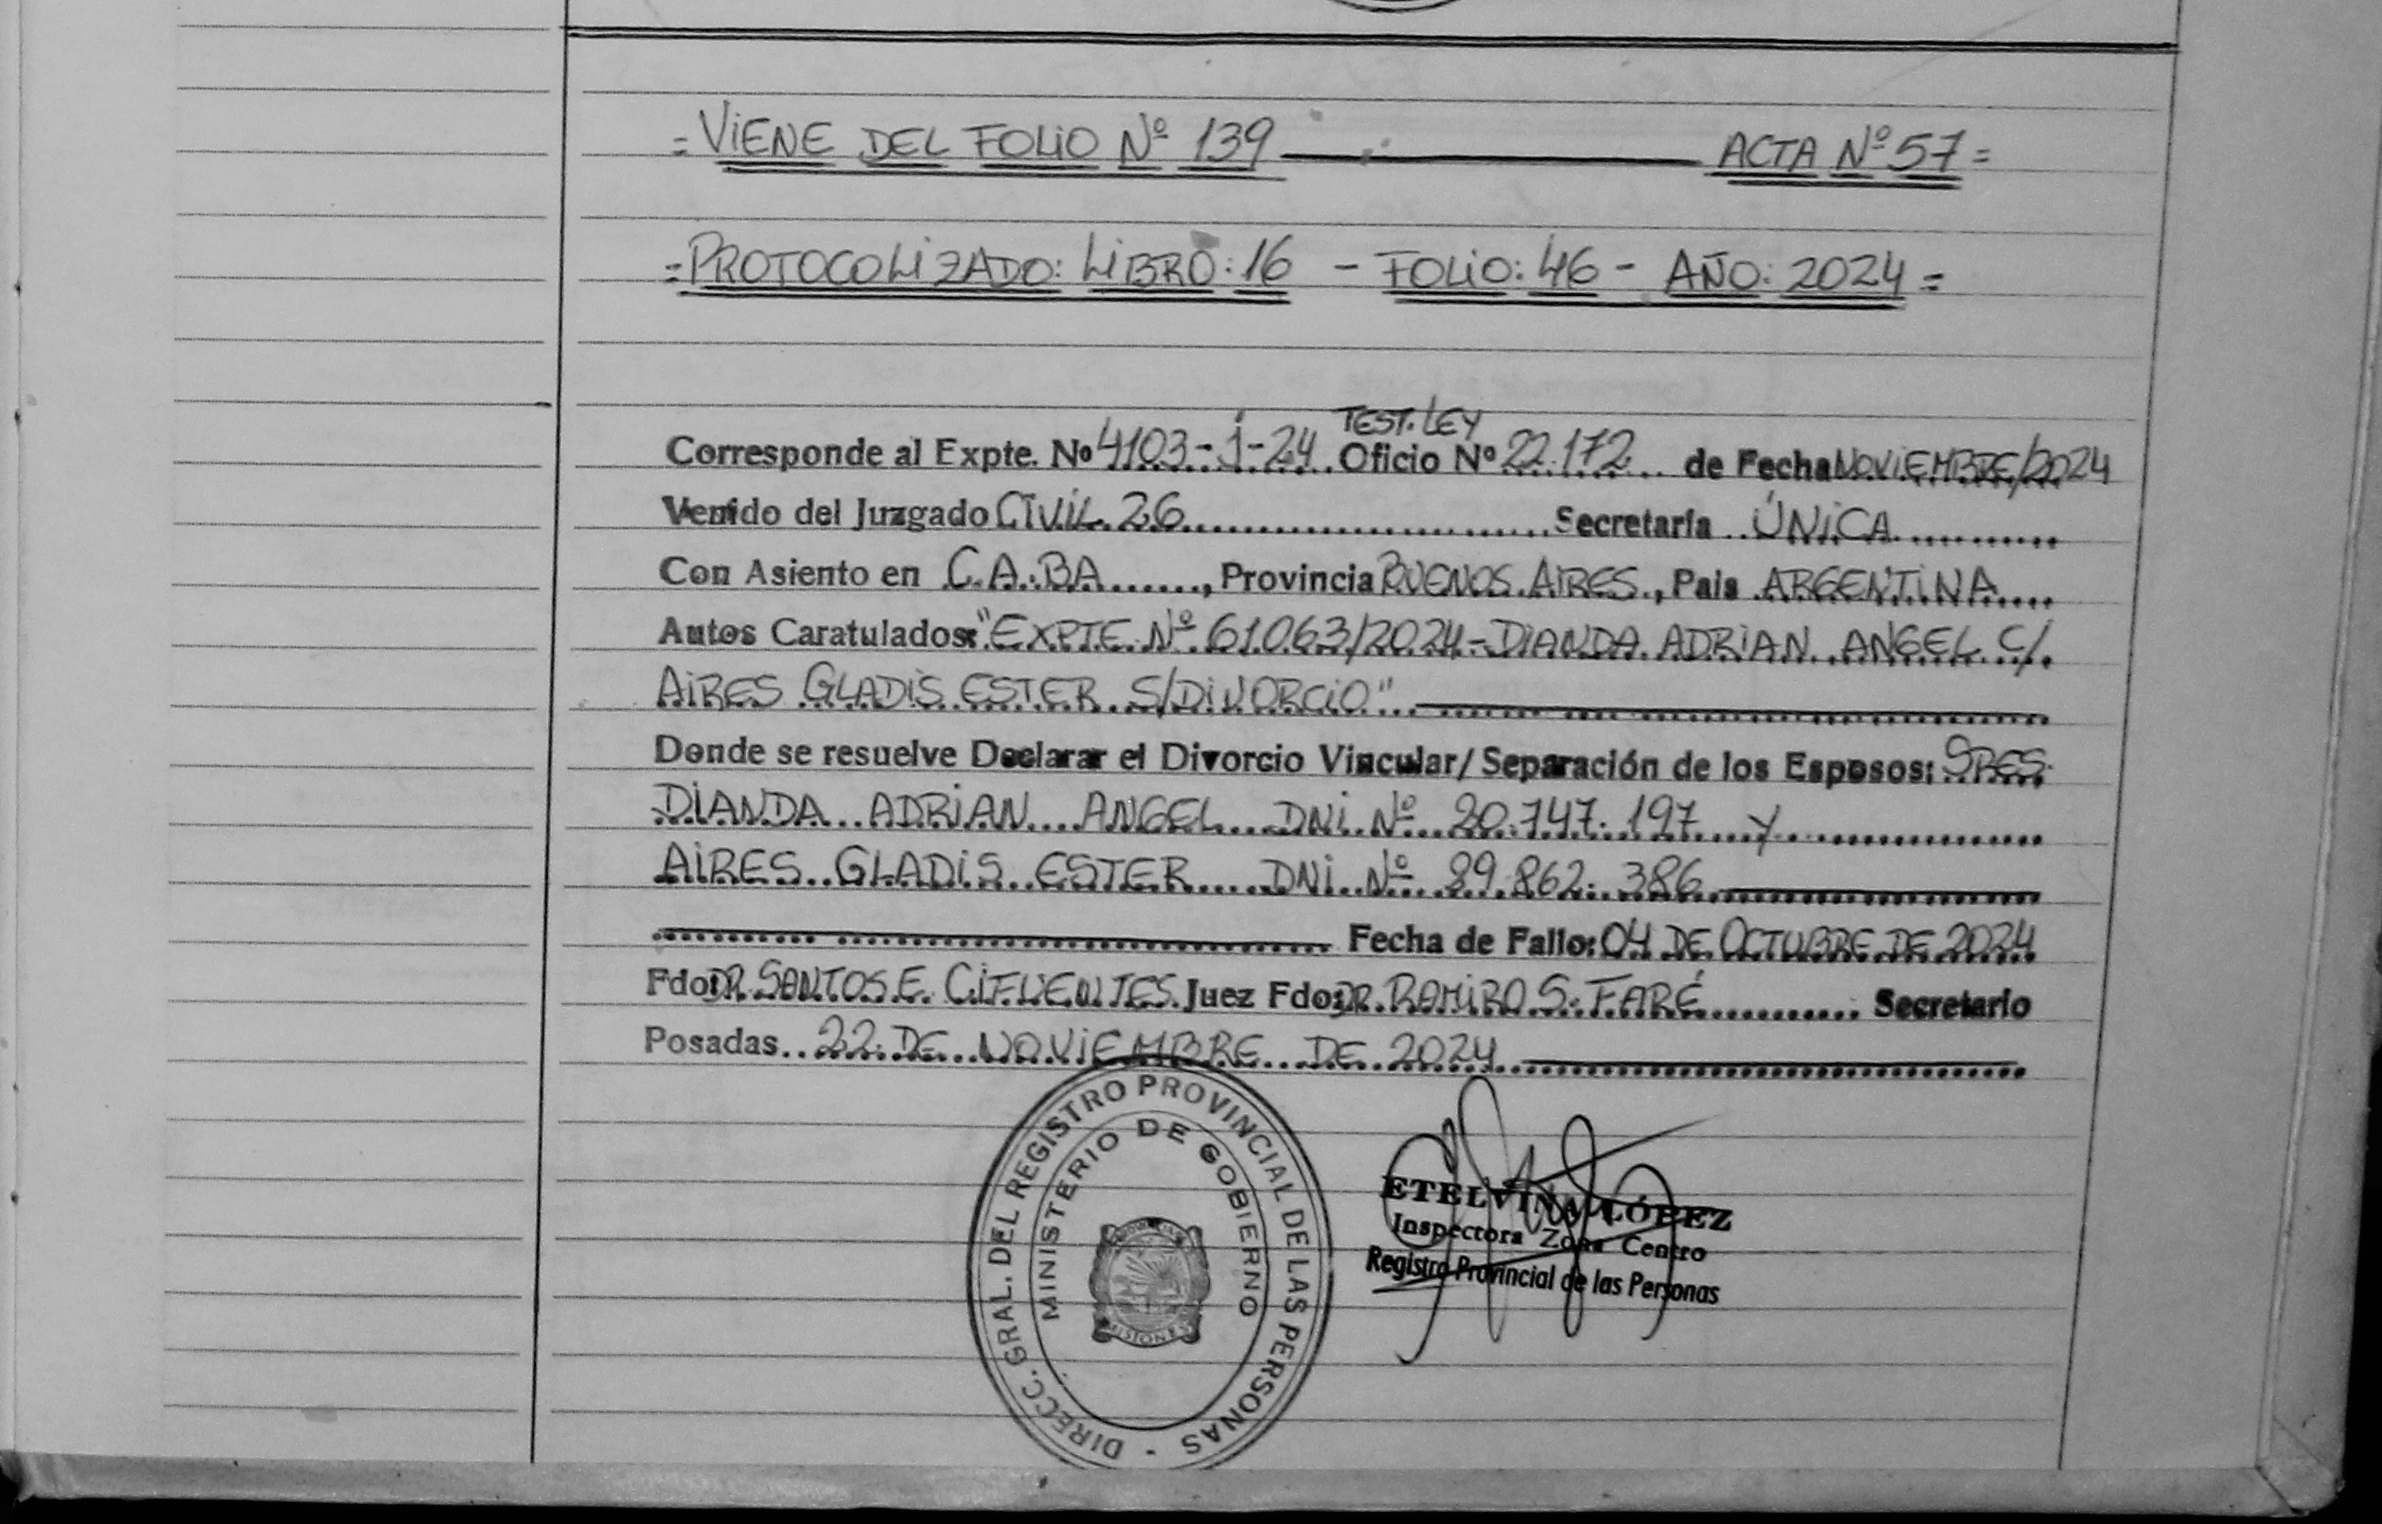 = VIENE DEL FOLIO Nº 139 ——— ACTA Nº 57 =
= PROTOCOLIZADO: LIBRO: 16 - FOLIO: 46 - AÑO: 2024 =
TEST. LEY
Corresponde al Expte. Nº 4103-J-24 Oficio Nº 22.172 de Fecha NOVIEMBRE/2024
Venido del Juzgado CIVIL 26 Secretaría ÚNICA
Con Asiento en C.A.BA, Provincia BUENOS AIRES, Pais ARGENTINA
Autos Caratulados: "EXPTE. Nº 61.063/2024 - DIANDA ADRIAN ANGEL C/
AIRES GLADIS ESTER S/DIVORCIO"
Donde se resuelve Declarar el Divorcio Vincular/Separación de los Esposos: SRES.
DIANDA ADRIAN ANGEL DNI Nº 20.747.197 Y
AIRES GLADIS ESTER DNI Nº 39.862.386
Fecha de Fallo: 04 DE OCTUBRE DE 2024
Fdo: DR. SANTOS E. CIFUENTES Juez Fdo: DR. RAMIRO S. FARÉ Secretario
Posadas 22 DE NOVIEMBRE DE 2024
DIRECC. GRAL. DEL REGISTRO PROVINCIAL DE LAS PERSONAS -
MINISTERIO DE GOBIERNO
MISIONES
ETELVINA LÓPEZ
Inspectora Zona Centro
Registro Provincial de las Personas